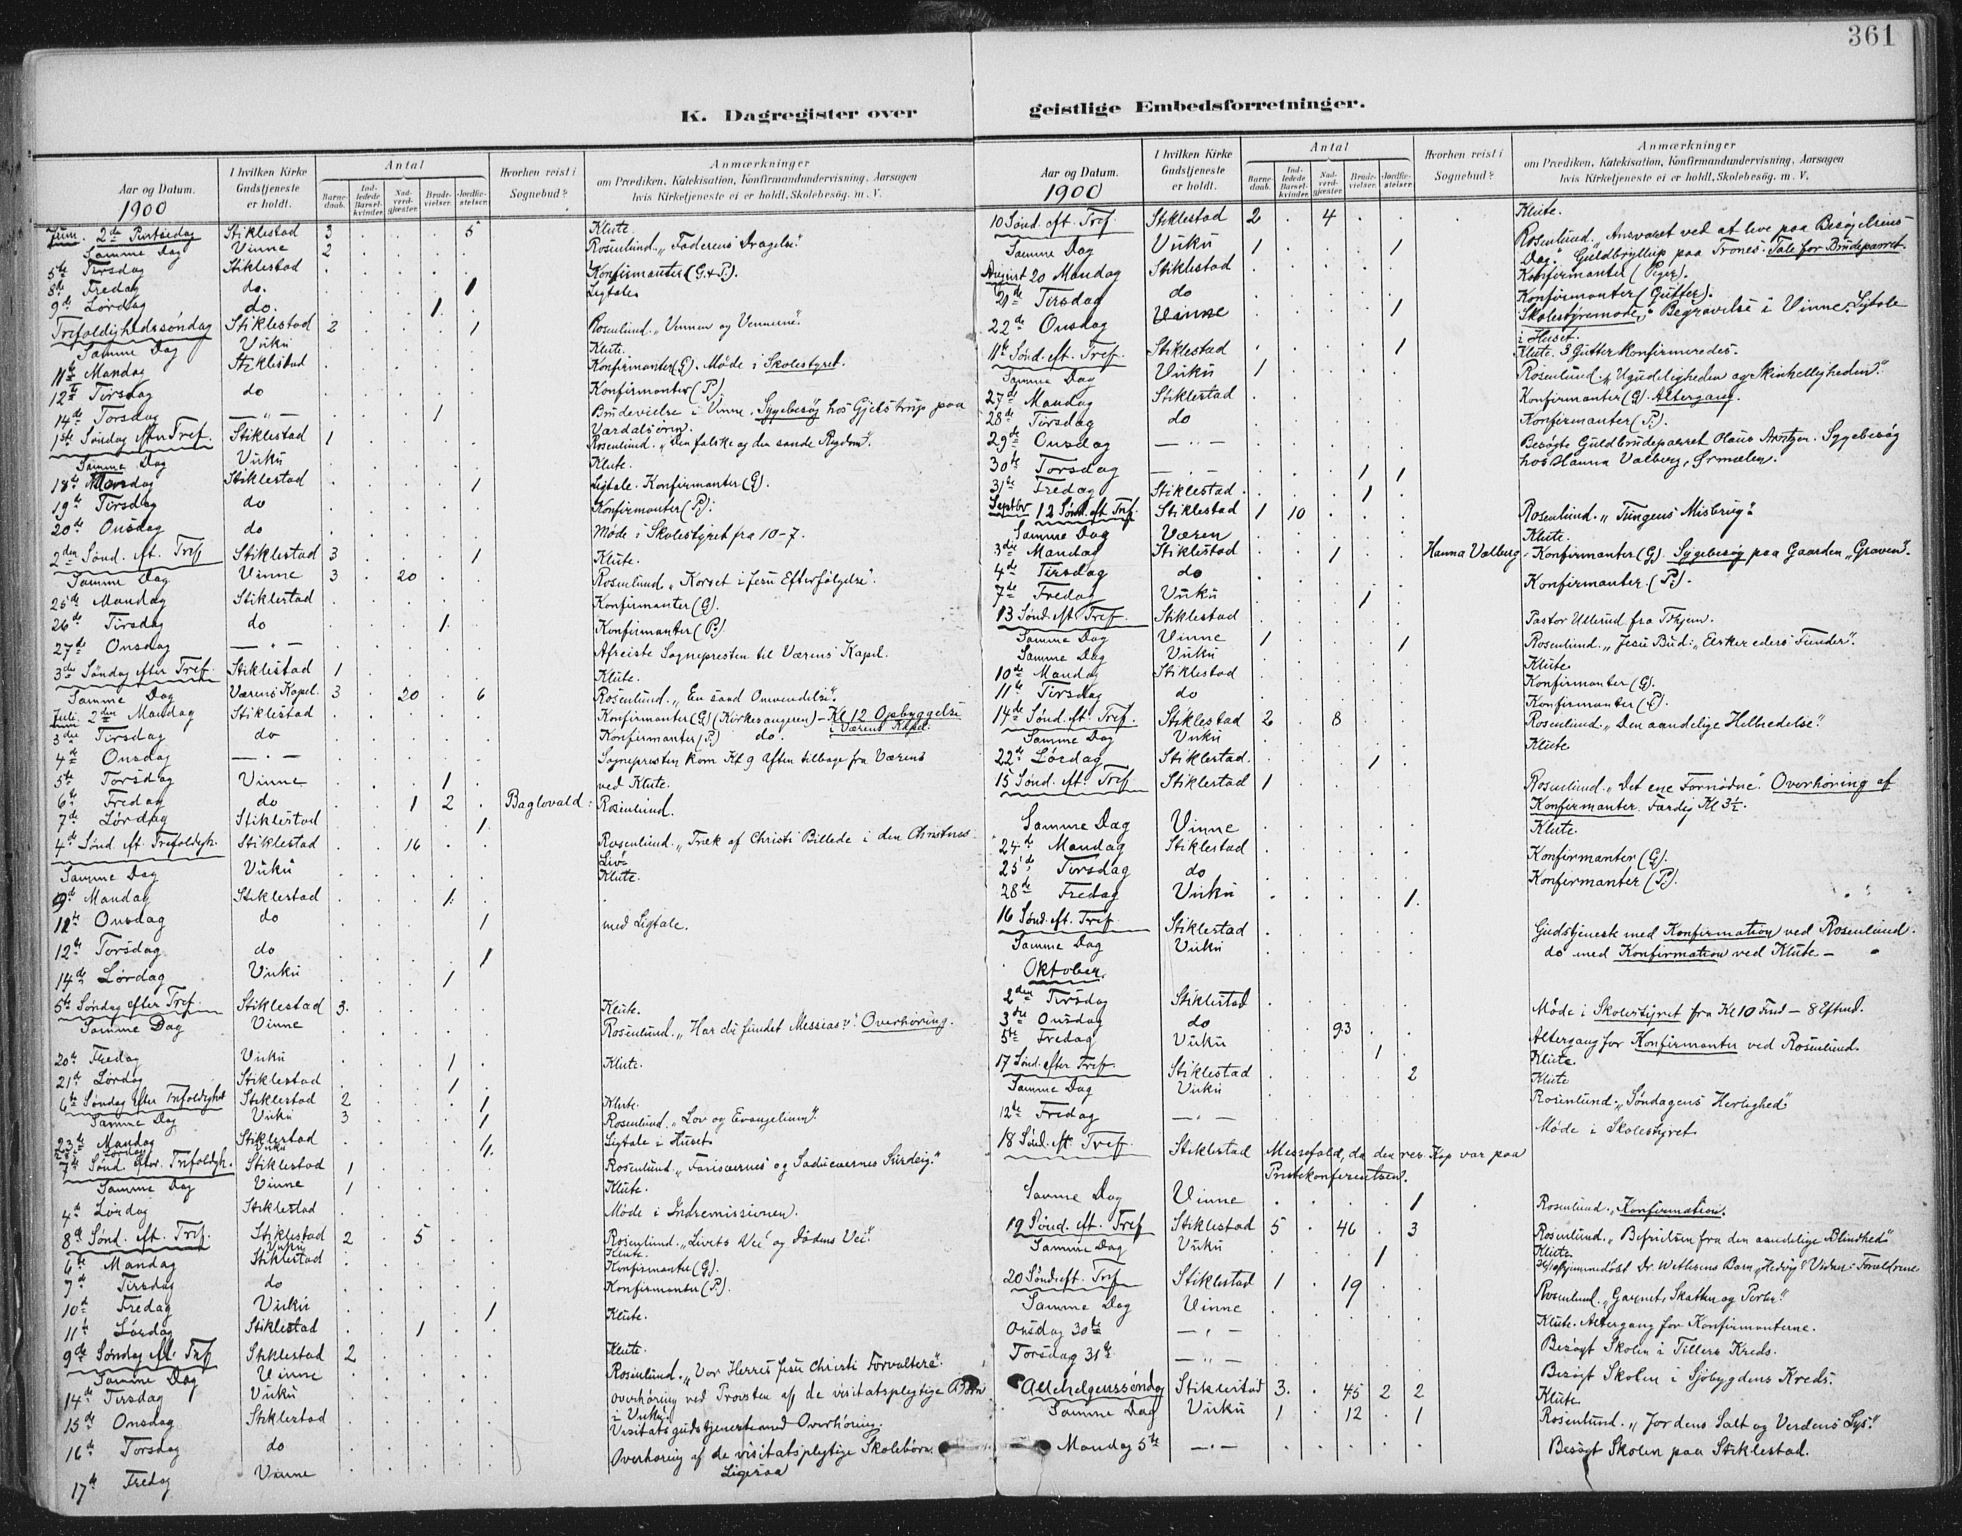 361
K. Dagregister over
geistlige Embedsforretninger.
Aar og Datum.
1900
I hvilken Kirke Gudstjeneste er holdt.
Antal
Barnedaab.
Indledede Barselkvinder.
Nadverdgjæster.
Brudevielser.
Jordfæstelser.
Hvorhen reist i Sognebud?
Anmærkninger
om Prædiken, Katekisation, Konfirmandundervisning, Aarsagen
hvis Kirketjeneste ei er holdt, Skolebesøg. m. V.
Juni. 2de Pintsedag Stiklestad 3 . . . 5 Klüte.
Samme Dag Vinne 2 Rosenlund. „Faderens Dragelse."
5te Tirsdag Stiklestad Konfirmanter (G. & P.).
8de Fredag do. 1 Ligtale
9de Lørdag do. 1
Trefoldighedssøndag Stiklestad 2 . . . 1 Rosenlund. „Vennen og Vennerne".
Samme Dag Vuku Klüte.
11te Mandag Stiklestad Konfirmanter (G). Møde i Skolestyret.
12te Tirsdag do Konfirmanter (P.)
14de Torsdag — „ — 1 Brudevielse i Vinne. Sygebesøg hos Gjelstrup paa
Værdalsøren.
1ste Søndag efter Tref. Stiklestad 1 Rosenlund. „Den falske og den sande Rigdom".
Samme Dag Vuku Klüte.
18de Mandag Stiklestad 1 Ligtale. Konfirmanter (G).
19de Tirsdag do Konfirmanter (P.).
20de Onsdag do Møde i Skolestyret fra 10-7.
2den Sønd. eft. Tref. Stiklestad 3 . . . 1 Klüte.
Samme Dag Vinne 3 . 20 Rosenlund „Korset i Jesu Efterfølgelse".
25de Mandag Stiklestad Konfirmanter (G).
26de Tirsdag do 1 Konfirmanter (P.)
27de Onsdag — „ — Afreiste Sognepresten til Værens Kapel.
3die Søndag efter Tref. Stiklestad 1 Klüte.
Samme Dag Værens Kapel. 3 . 20 . 6 Rosenlund. „En sand Omvendelse".
Juli 2den Mandag Stiklestad Konfirmanter (G) (Kirkesangeren) – Kl 12 Opbyggelse
i Værens Kapel.
3die Tirsdag do Konfirmanter (P.) do.
4de Onsdag — „ — Sognepresten kom Kl 9 Aften tilbage fra Værens
5te Torsdag Vinne 1 ved Klüte.
6te Fredag do 1 2 Baglovald. Rosenlund.
7de Lørdag Stiklestad 1
4de Sønd. eft. Trefoldigh. Stiklestad . . 16 Rosenlund. „Træk af Christi Billede i den Christnes
Liv".
Samme Dag Vuku Klüte.
9de Mandag Stiklestad 1
Onsdag do 1 med Ligtale.
12te Torsdag do 1
14de Lørdag Vuku 1
5te Søndag efter Tref. Stiklestad 3. Klüte.
Samme Dag Vinne Rosenlund. „Har du fundet Messias?" Overhøring.
20de Fredag Vuku 1 Klüte.
21de Lørdag Stiklestad 1
6te Søndag efter Trefoldighed Stiklestad 2 . . . 1 Klüte.
Samme Dag Vuku 3 . . . 1 Rosenlund. „Lov og Evangelium".
23de Mandag Stiklestad Ligtale i Huset
Lørdag Vuku 4.
7de Sønd. efter Trefoldigh. Stiklestad 1 Rosenlund. „Farisæernes og Saducæernes Surdeig."
Samme Dag Vinne 1 Klüte.
4de Lørdag Stiklestad Møde i Indremissionen.
8de Sønd. eft. Tref. Stiklestad 2 . 5 Rosenlund. „Livets Vei og Dødens Vei".
Vuku Klüte.
6te Mandag Stiklestad Konfirmanter (G).
7de Tirsdag do Konfirmanter (P.).
10de Fredag Vuku 1 Klüte.
11te Lørdag Stiklestad 1
9de Søndag eft. Tref Stiklestad 2 Klüte.
Samme Dag Vinne Rosenlund. „Vor Herres Jesu Christi Forvaltere".
14de Tirsdag Vuku overhøring ved Provsten af de visitatspligtige Børn
i Vuku.
15de Onsdag Stiklestad Visitatsgudstjeneste med Overhøring.
16de Torsdag do Overhøring af de visitatsplygtige Skolebørn.
17de Fredag Vinne Ligesaa
Aar og Datum.
1900
I hvilken Kirke Gudstjeneste er holdt.
Antal
Barnedaab.
Indledede Barselkvinder.
Nadverdgjæster.
Brudevielser.
Jordfæstelser.
Hvorhen reist i Sognebud?
Anmærkninger
om Prædiken, Katekisation, Konfirmandundervisning, Aarsagen
hvis Kirketjeneste ei er holdt, Skolebesøg. m. V.
10 Sønd. eft. Tref. Stiklestad 2 . 4 Klüte.
Samme Dag Vuku 1 . . . 1 Rosenlund. „Ansvaret ved at leve paa Besøgelsens
Dag. Guldbryllup paa Trones. Tale for Brudeparret.
August 20 Mandag Stiklestad Konfirmanter (Piger).
21de Tirsdag do Konfirmanter (Gutter).
22de Onsdag Vinne 1 Skolestyremøde, Begravelse i Vinne. Ligtale
i Huset.
11te Sønd. eft. Tref. Stiklestad 1 Klüte. 3 Gutter konfirmeredes.
Samme Dag Vuku 1 Rosenlund. „Ugudeligheden og Skinhelligheden".
27de Mandag Stiklestad Konfirmanter (G). Altergang.
28de Tirsdag do Konfirmanter (P.).
29de Onsdag — „ — Besøgte Guldbrudeparret Olaus Arntzen. Sygebesøg
hos Hanna Valberg, Ørmælen.
30te Torsdag — „ — 1 1
31te Fredag Stiklestad. 1
Septbr 12 Sønd. eft. Tref. Stiklestad 1 10 Rosenlund. „Tungens Misbrug".
Samme Dag Væren Klüte.
3die Mandag Stiklestad 1 Hanna Valberg. Konfirmanter (G). Sygebesøg paa Gaarden „Graven".
4de Tirsdag do Konfirmanter (P.).
7de Fredag Vuku 1
13 Sønd. eft. Tref. Stiklestad Pastor Ullerud fra
Samme Dag Vinne 1 . . . 1 Rosenlund. „Jesu Bud: „Elsker eders Fiender".
Samme Dag Vuku Klüte
10de Mandag Stiklestad Konfirmanter (G).
11te Tirsdag do Konfirmanter (P.).
14de Sønd. eft. Tref. Stiklestad 2 . 8 Rosenlund. „Den aandelige Helbredelse".
Samme Dag Vuku Klüte
22de Lørdag Stiklestad. 1
15 Sønd. eft. Tref. Stiklestad 1 Rosenlund. „Det ene Fornødne". Overhøring af
Konfirmanter. Færdig Kl 3½.
Samme Dag Vinne Klüte.
24de Mandag Stiklestad Konfirmanter (G).
25de Tirsdag do Konfirmanter (P.).
28de Fredag Vuku 1.
16 Sønd. eft. Tref. Stiklestad Gudstjeneste med Konfirmation ved Rosenlund.
Samme Dag Vuku do med Konfirmation ved Klüte –
Oktober.
2den Tirsdag Stiklestad Møde i Skolestyret fra Kl 10 Fmd – 8 Eftmd.
3die Onsdag do 93 Altergang for Konfirmanter ved Rosenlund.
5te Fredag Vuku 1 Klüte.
17 Sønd. efter Tref. Stiklestad 2 Klüte
Samme Dag Vuku Rosenlund. „Søndagens Herlighed"
12te Fredag — „ — Møde i Skolestyret.
18 Sønd. eft. Tref. Stiklestad Messefald, da den res. Kap var paa
Prestekonferentsen.
Samme Dag Vinne 1 Rosenlund. „Konfirmation.
19 Sønd. eft. Tref Stiklestad 5 . 46 . 3 Rosenlund. „Befrielsen fra den aandelige Blindhed"
Samme Dag Vuku 1 Klüte.
hjemmedøbt Dr. Barn „Hedvig"
20 Sønd. eft. Tref Stiklestad 1 . 19 Rosenlund. „Garnet, Skatten og Perlen"
Samme Dag Vinne Klüte. Altergang for Konfirmanterne.
Onsdag 30te — „ — Besøgt Skolen i Tillers Kreds.
Torsdag 31te — „ — Besøgt Skolen i Sjøbygdens Kreds.
Allehelgenssøndag Stiklestad 3. . 45 2 2 Klüte.
Samme Dag Vuku 1 . 12 . 1 Rosenlund. „Jordens Salt og Verdens Lys".
Mandag 5te — „ — Besøgt Skolen paa Stiklestad.